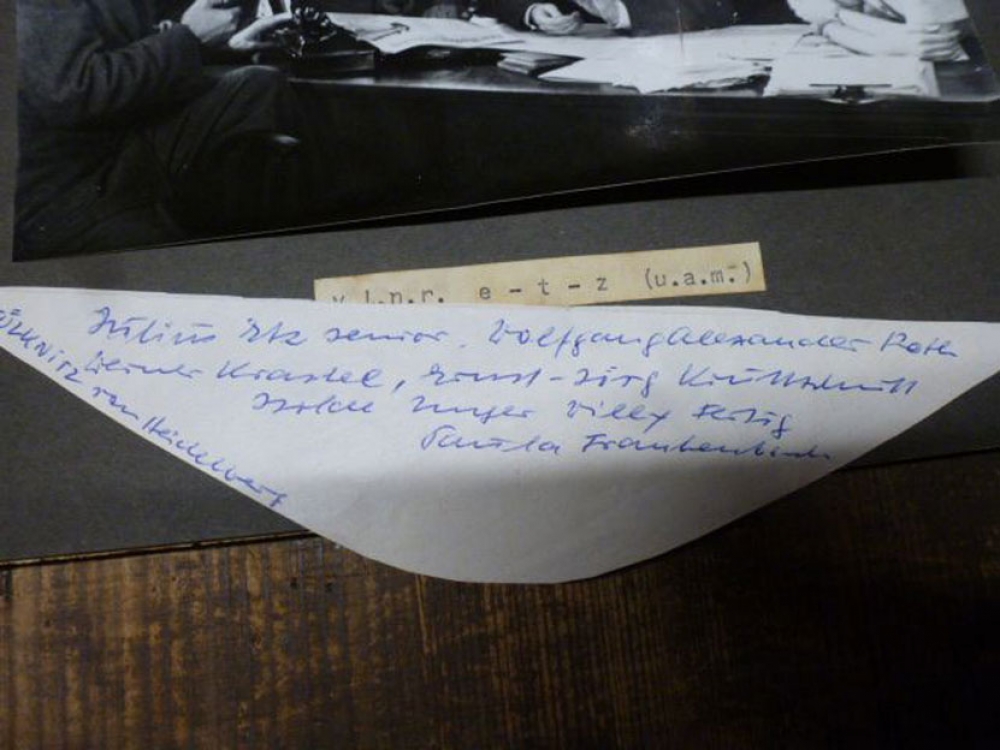 v.l.n.r. e - t - z (u.a.m.)
Julius Etz senior. Wolfgang Alexander Roth
Werner Krastel, Ernst-Jörg Kruttschnitt
Isolde Unger Villy Fertig
Paula Frankenbach
von Heidelberg